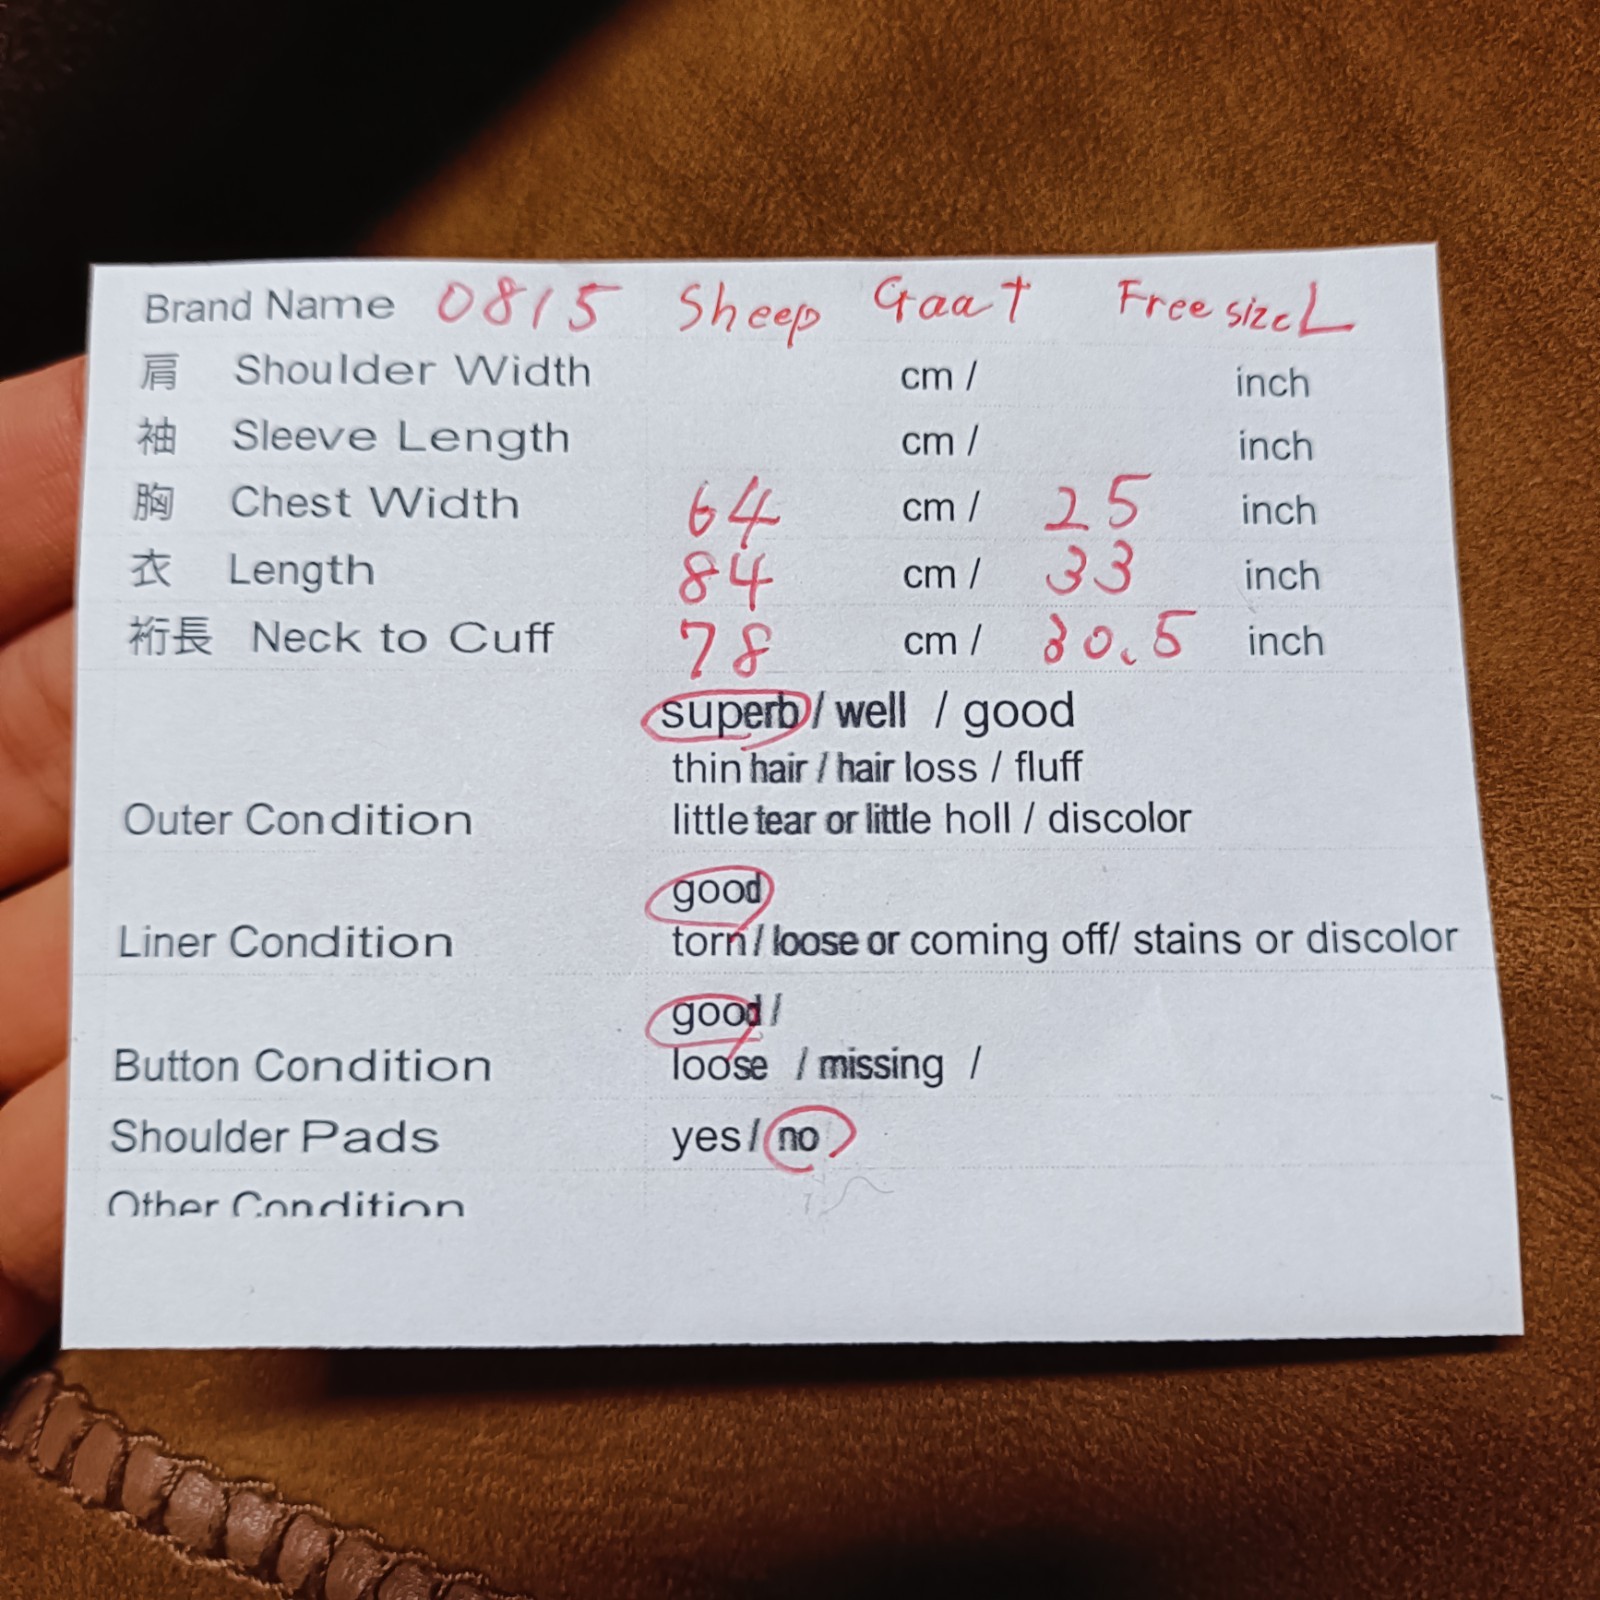 Brand Name 0815 Sheep Gaat Free size L
肩 Shoulder Width cm / inch
袖 Sleeve Length cm / inch
胸 Chest Width 64 cm / 25 inch
衣 Length 84 cm / 33 inch
裄長 Neck to Cuff 78 cm / 30.5 inch
superb / well / good
thin hair / hair loss / fluff
Outer Condition little tear or little holl / discolor
good
Liner Condition torn / loose or coming off/ stains or discolor
good /
Button Condition loose / missing /
Shoulder Pads yes / no
Other Condition